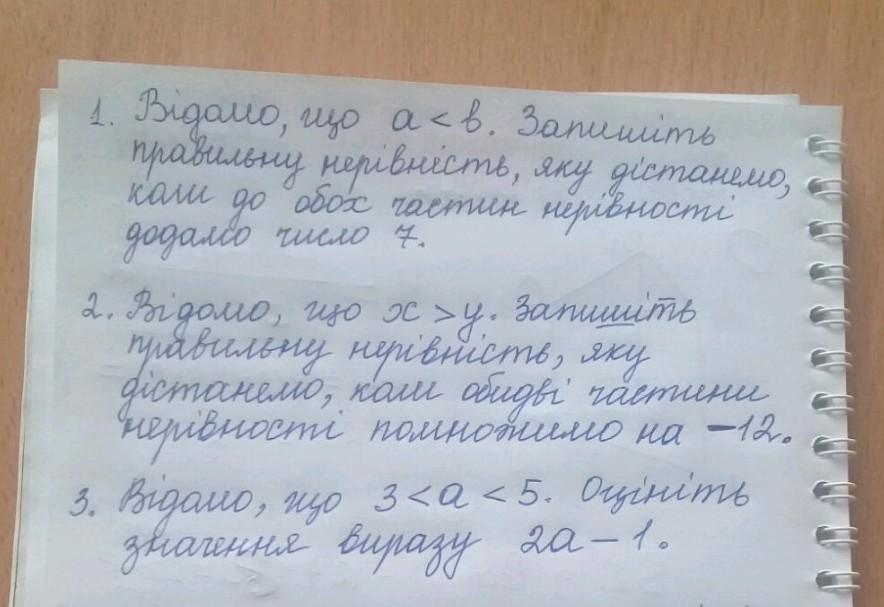 1. Відомо, що a < b. Запишіть
правильну нерівність, яку дістанемо,
коли до обох частин нерівності
додамо число 7.
2. Відомо, що x > y. Запишіть
правильну нерівність, яку
дістанемо, коли обидві частини
нерівності помножимо на −12.
3. Відомо, що 3 < a < 5. Оцініть
значення виразу 2a − 1.